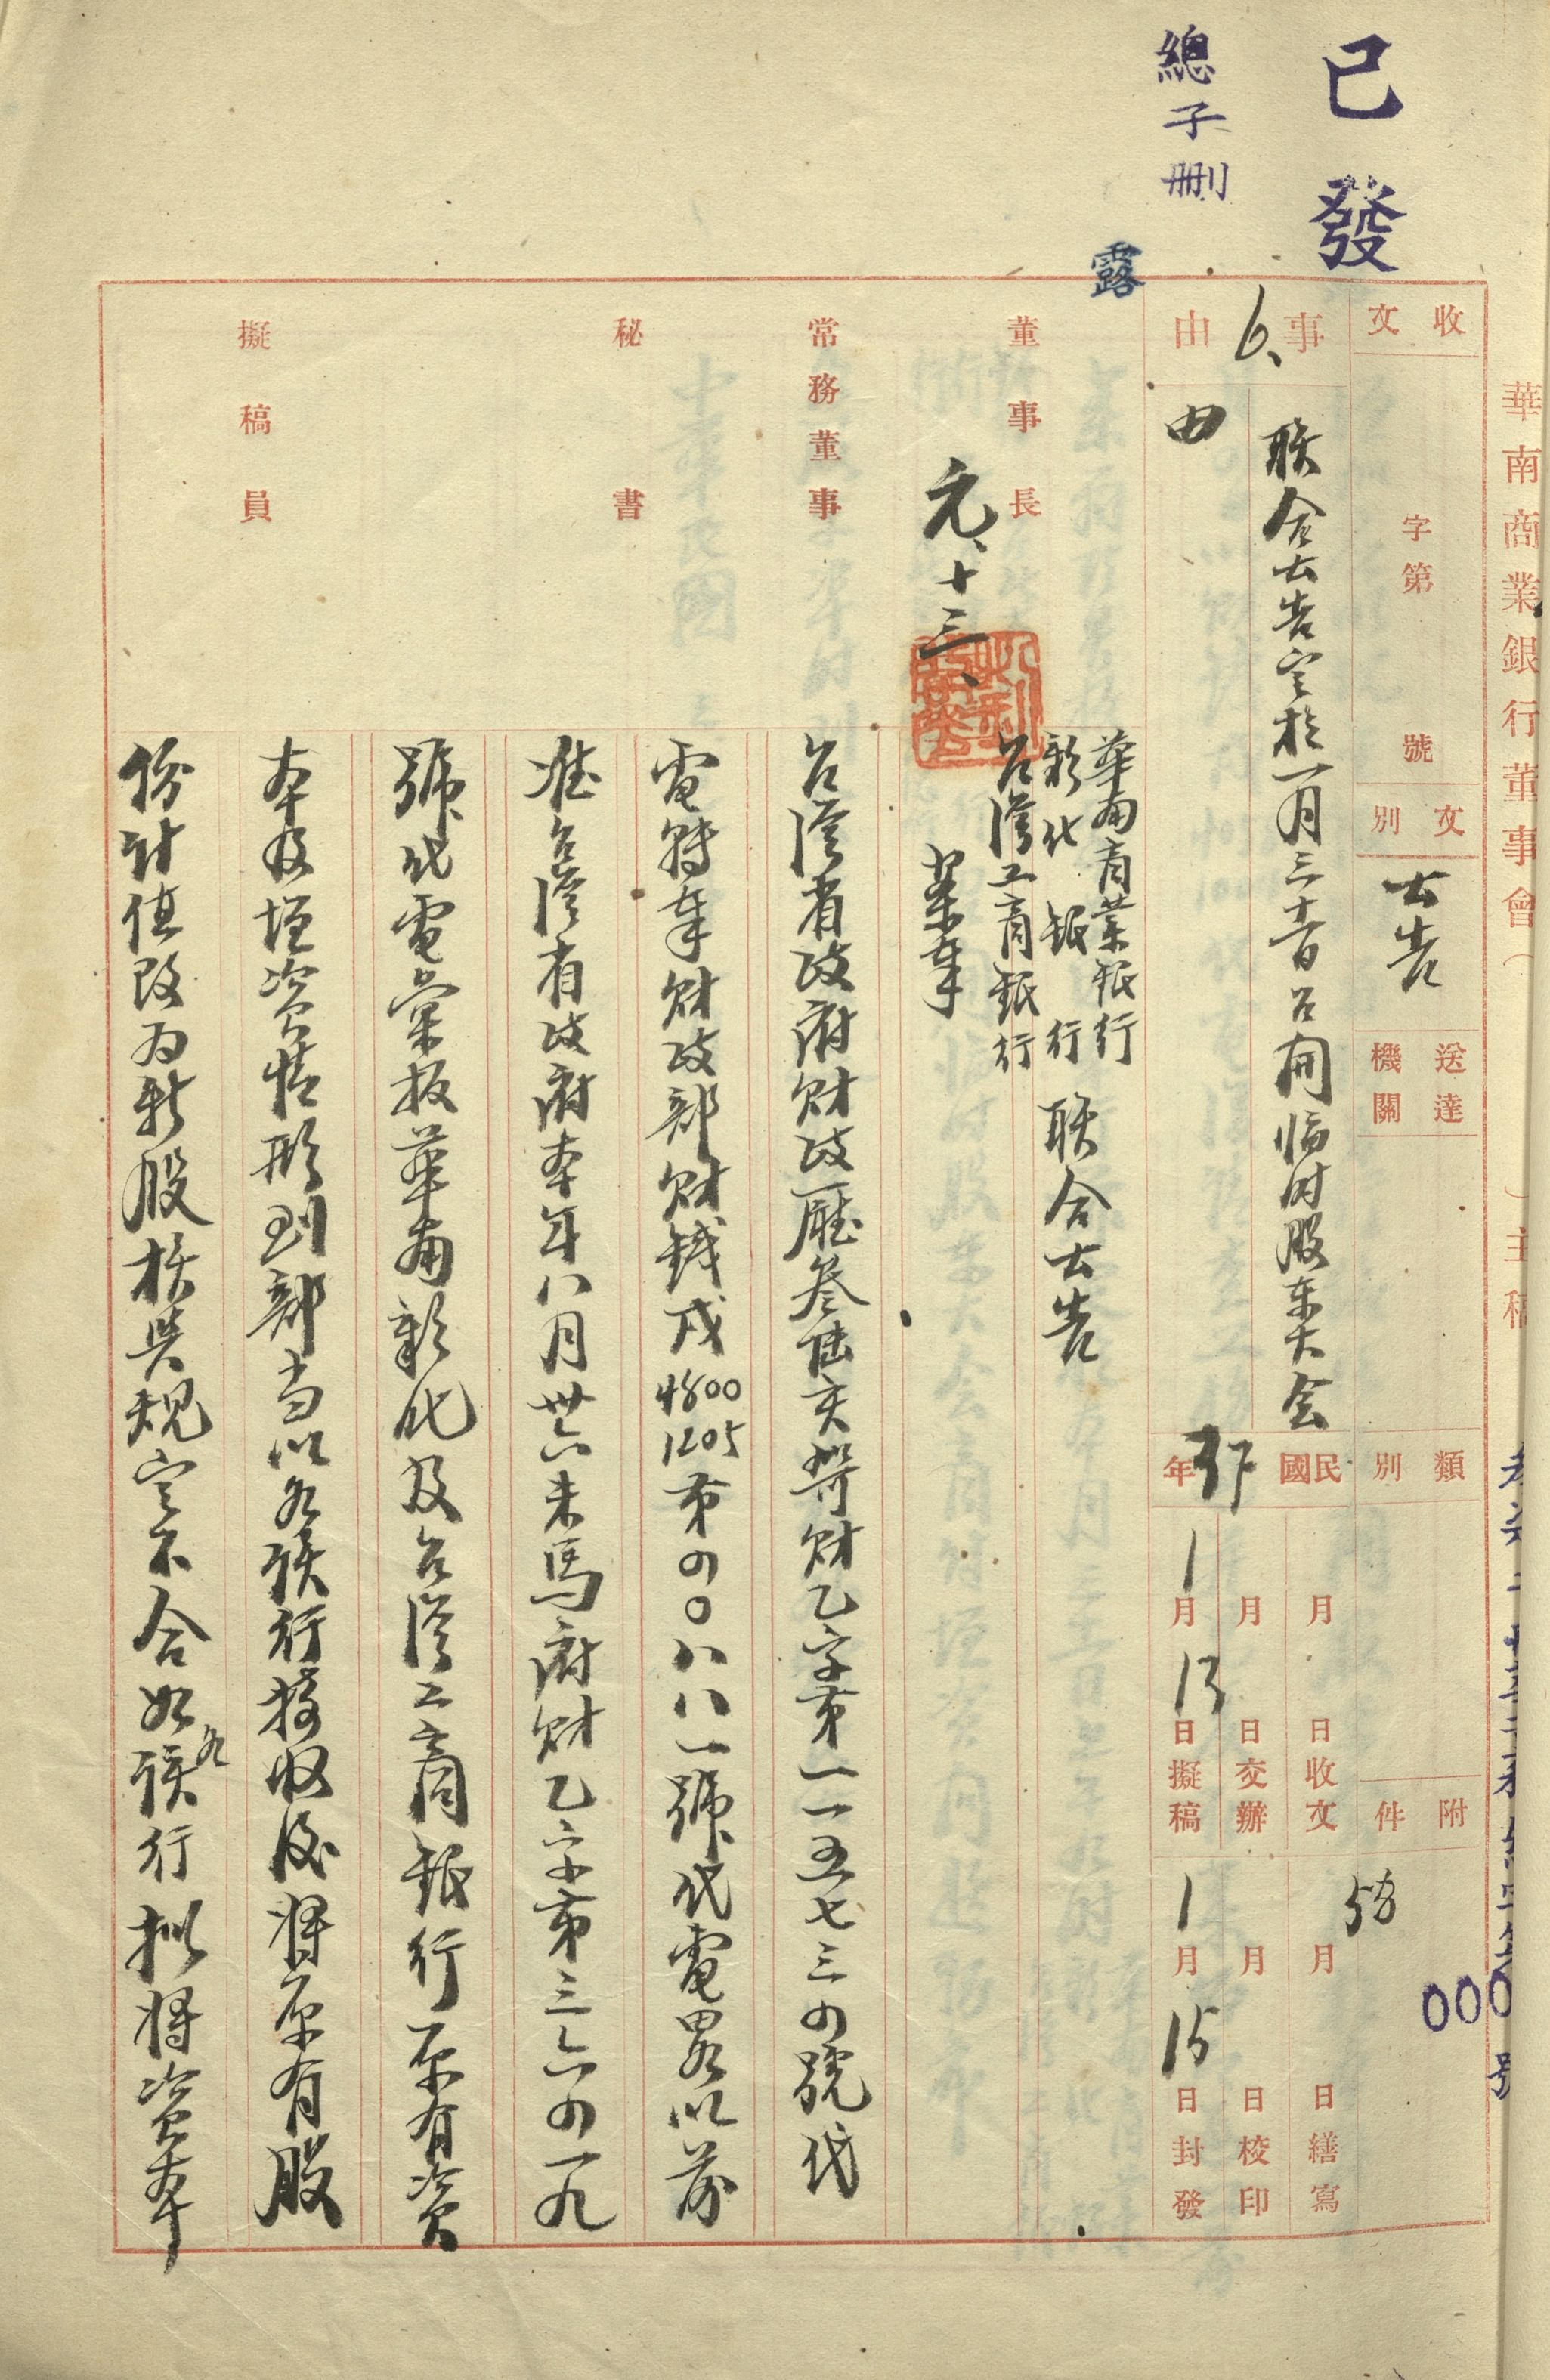 已發
總子刪
露
華南商業銀行董事會（　　）主稿
收文
字第　號
文別
公告
送達機關
類別
附件
事由
6、
聯合公告定於一月三十一日召開臨時股東大会
由
民國37年
月　日收文
月　日交辦
1月13日擬稿
月　日繕寫
月　日校印
1月15日封發
000
號
董事長
元、十三、
常務董事
秘書
擬稿員
華南商業銀行
彰化銀行
台灣工商銀行
联合公告
案奉
台灣省政府財政廳叁陸亥哿財乙字第一一五七三四號代
電轉奉財政部財錢戊4800 1205第四〇八八一號代電畧以前
准台灣省政府本年八月卅六未馬府財乙字第三六四一九
號代電彙报華南彰化及台灣工商銀行原有資
本及增資情形到部当以各該行接收後將原有股
份計值改為新股核與規定不合如各該行拟將資本